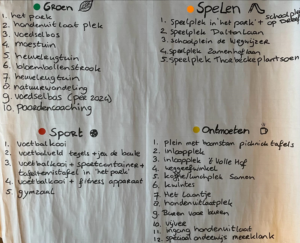 Groen
1. het park
2. hondenuitlaat plek
3. voedselbos
4. moestuin
5. heuvelrugtuin
6. bloembollenstrook
7. heuvelrugtuin
8. natuurwandeling
9. voedselbos (per 2024)
10. paardencoaching
Spelen
1. speelplek in het park +
2. speelplek Daltonlaan
3. schoolplein de wegwijzer
4. speelplek Zamenhoflaan
5. speelplek Thorbeckeplantsoen
Sport
1. voetbalkooi
2. voetbalveld tegels + jeu de boule
3. voetbalkooi + sportcontainer +
tafeltennistafel in 'het park'
4. voetbalkooi + fitness apparaat
5. gymzaal
Ontmoeten
1. plein met boomstam picknick tafels
2. inloopplek
3. inloopplek 't Volle Hof
4.
5. koffie/lunchplek Samen
6. kwintes
7. Het Laantje
8. hondenuitlaatplek
9. Buren voor buren
10. vijver
11. ingang hondenuitlaat
12. speciaal onderwijs